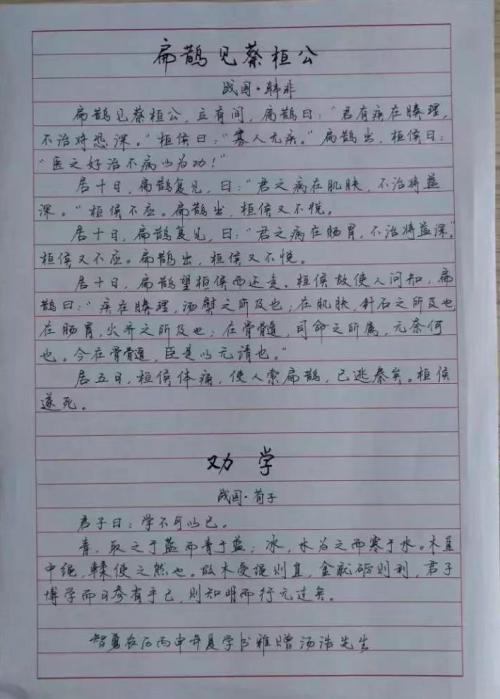 扁鹊见蔡桓公
战国·韩非
扁鹊见蔡桓公，立有间，扁鹊曰：“君有疾在腠理，
不治将恐深。”桓侯曰：“寡人无疾。”扁鹊出，桓侯曰：
“医之好治不病以为功！”
居十日，扁鹊复见，曰：“君之病在肌肤，不治将益
深。”桓侯不应。扁鹊出，桓侯又不悦。
居十日，扁鹊复见，曰：“君之病在肠胃，不治将益深。”
桓侯又不应。扁鹊出，桓侯又不悦。
居十日，扁鹊望桓侯而还走。桓侯故使人问知，扁
鹊曰：“疾在腠理，汤熨之所及也；在肌肤，针石之所及也，
在肠胃，火齐之所及也；在骨髓，司命之所属，无奈何
也。今在骨髓，臣是以无请也。”
居五日，桓侯体痛，使人索扁鹊，已逃秦矣。桓侯
遂死。
劝学
战国·荀子
君子曰：学不可以已。
青，取之于蓝而青于蓝；冰，水为之而寒于水。木直
中绳，輮使之然也。故木受绳则直，金就砺则利，君子
博学而日参省乎己，则知明而行无过矣。
岁次丙申年夏学书雅赠汤浩先生